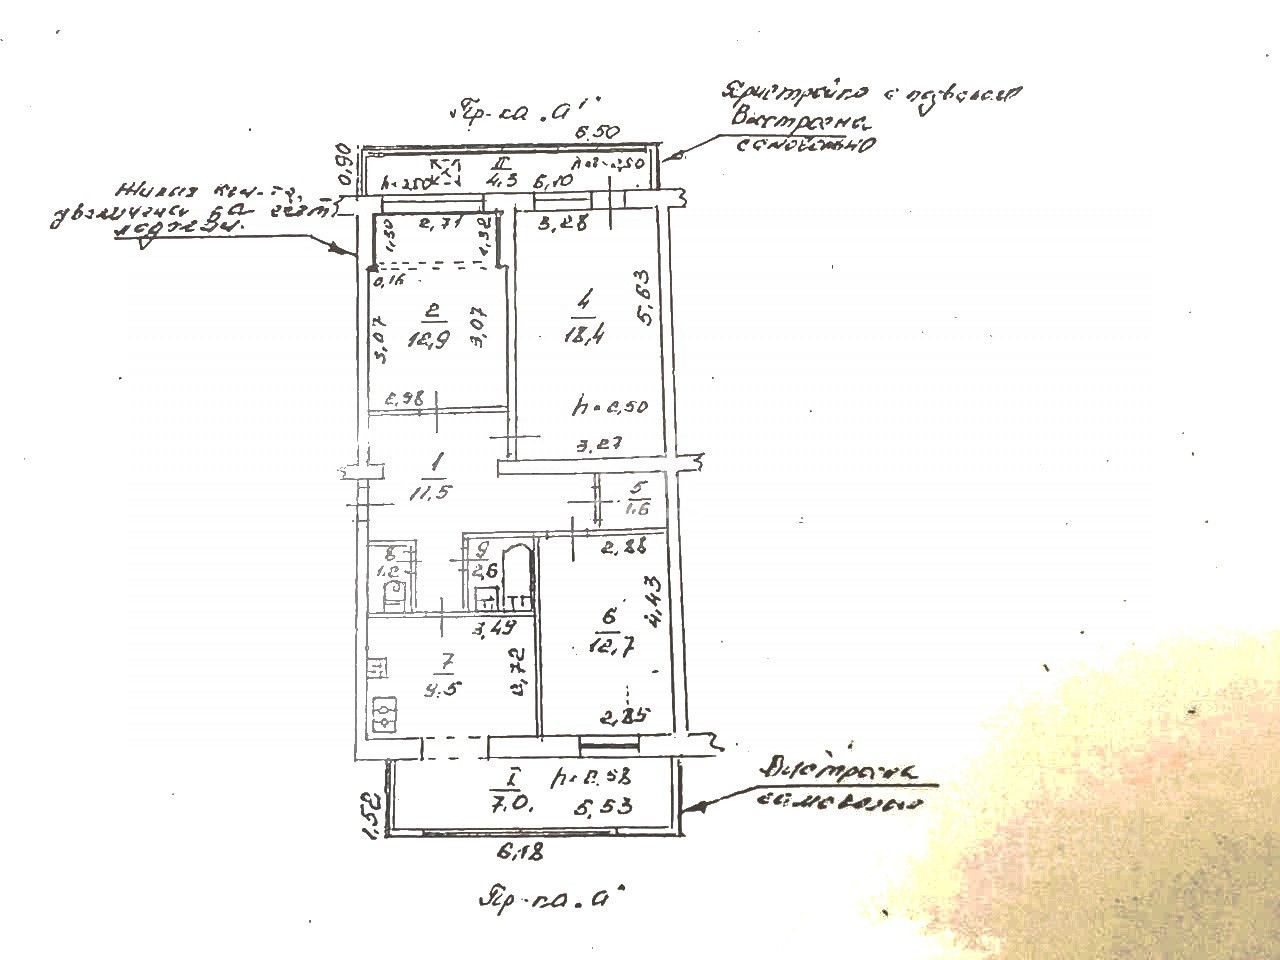 Пр-ка "а1"
Пристройка с подвалом
Выстроена
самовольно
6.50
0,90
II
4.3
h=2.50
h=2.50
6,10
Жилая ком-та,
увеличена за счёт
лоджии.
1,30
2,71
1,32
3,28
0,16
2
12,9
3,07
3,07
4
18,4
5.63
2,98
h=2,50
3,27
1
11,5
5
1.6
2,88
8
1.2
9
2,6
3,49
6
12,7
4,43
7
9.5
2,72
2,85
I
7.0.
h=2.58
5,53
Выстроена
самовольно
1,52
6,18
Пр-ка "а"